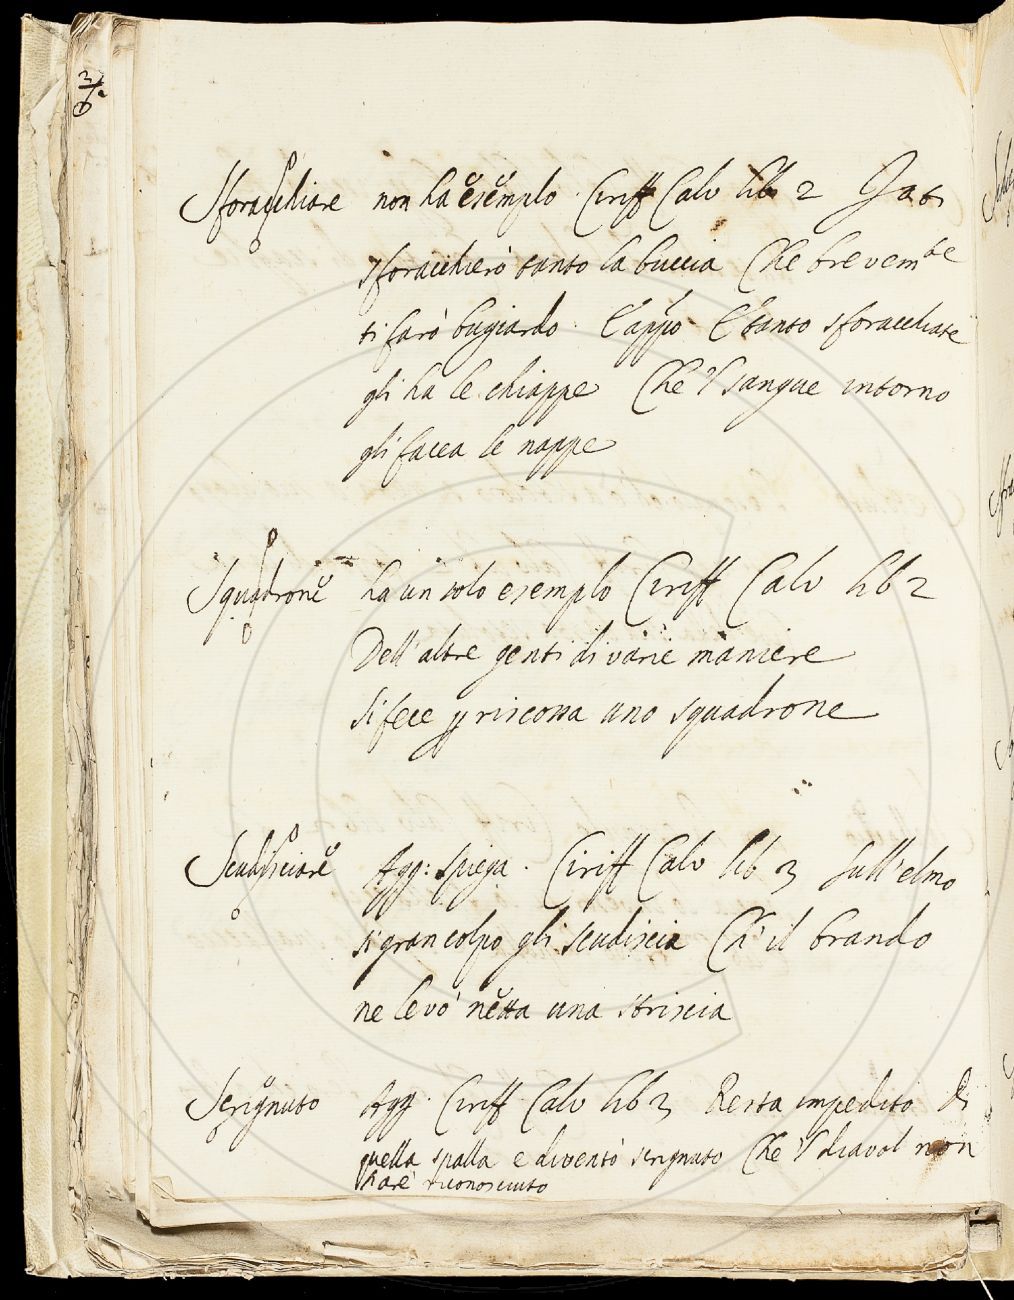 Sforacchiare non ha esemplo. Ciriff Calv lib 2 Ia ti
sforacchierò tanto la buccia Che brevem.te
ti farò bugiardo. E app.o E tanto sforacchiate
gli ha le chiappe Che 'l sangue intorno
gli facea le nappe
Squadrone ha un solo esemplo Ciriff Calv lib 2
Dell' altre genti di varie maniere
Si fece p riscossa uno squadrone
Scudisciare Agg: spiega. Ciriff Calv lib 3 Sull' elmo
si gran colpo gli scudiscia Ch' il brando
ne levò netta una striscia
Scrignuto Agg. Ciriff Calv lib 3 Resta impedito di
quella spalla e diventò scrignuto Che 'l diavol non
harè riconosciuto